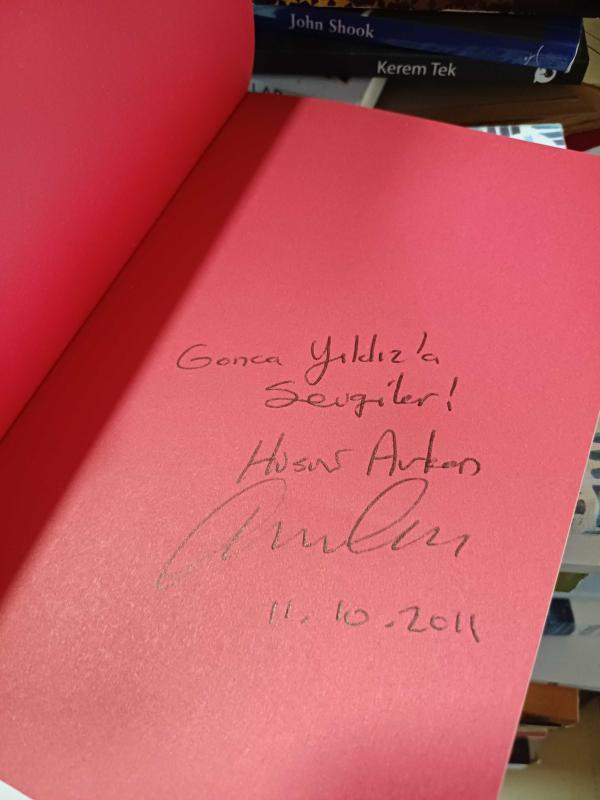 John Shook
Kerem Tek
LAR
Gonca Yıldız'a
Sevgiler!
Hüsnü Arkan
11.10.2011